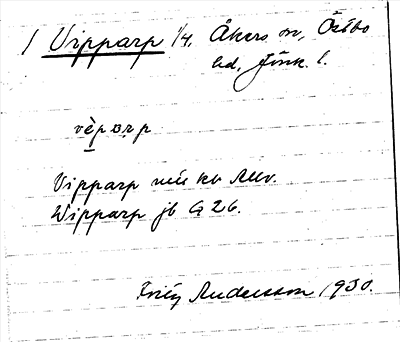 / Vipparp 1/4. Åkers sn, Östbo
hd, Jönk l.
vèpɒrp
Vipparp kb Allv.
Wipparp jb G 26.
Andersson 1930.